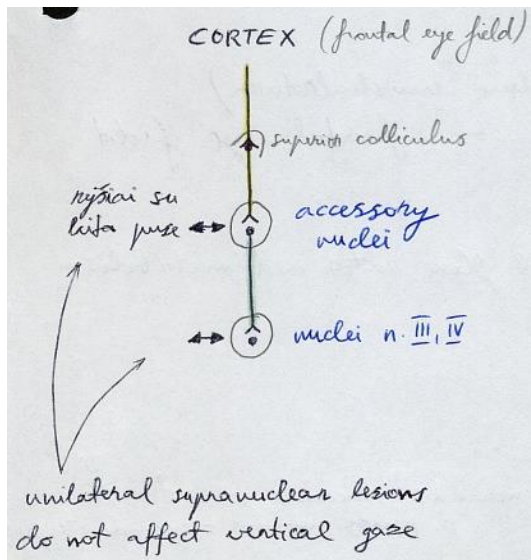 CORTEX (frontal eye field)
superior colliculus
ryšiai su
kita puse
accessory
nuclei
nuclei n. III, IV
unilateral supranuclear lesions
do not affect vertical gaze